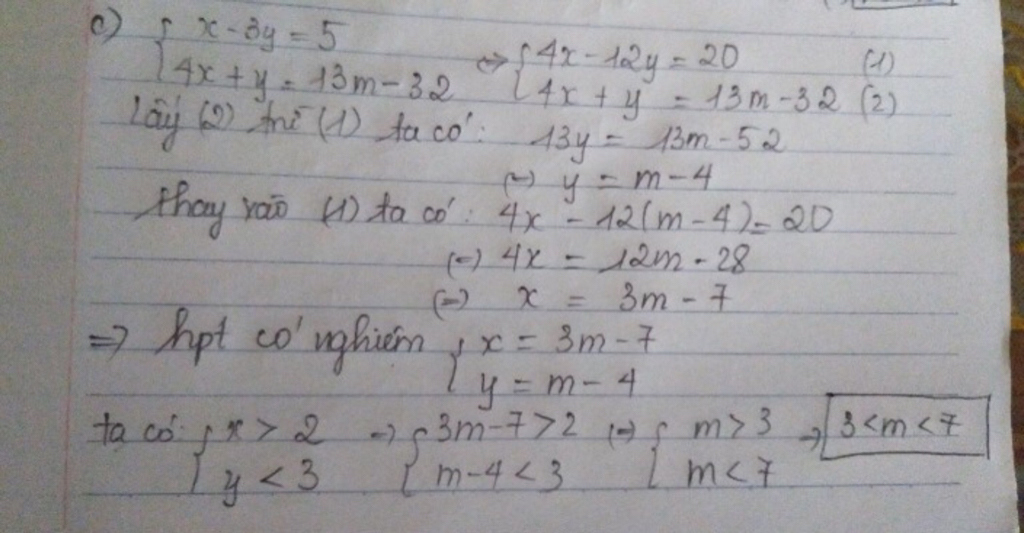 c) { x - 3y = 5
4x + y = 13m - 32
<=> { 4x - 12y = 20 (1)
4x + y = 13m - 32 (2)
Lấy (2) trừ (1) ta có: 13y = 13m - 52
(=) y = m - 4
thay vào (1) ta có: 4x - 12(m - 4) = 20
(=) 4x = 12m - 28
(=) x = 3m - 7
=> hpt có nghiệm { x = 3m - 7
y = m - 4
ta có: { x > 2 => { 3m - 7 > 2 (=) { m > 3 => 3 < m < 7
y < 3 m - 4 < 3 m < 7